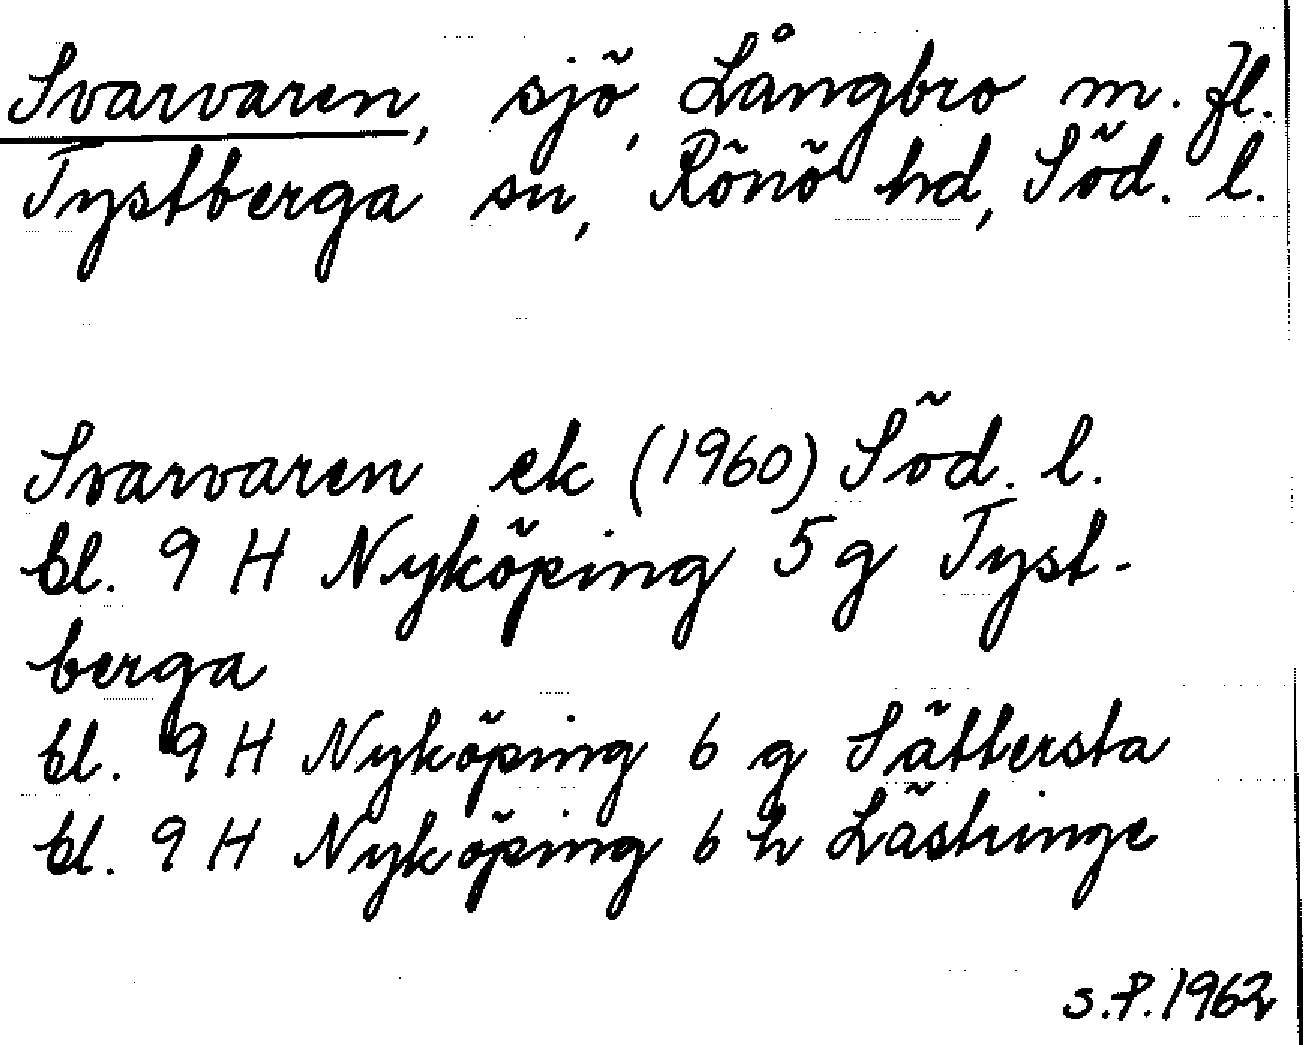 Svarvaren, sjö, Långbro m. fl.
Tystberga sn, Rönö hd, Söd. l.
Svarvaren ek (1960) Söd. l.
bl. 9 H Nyköping 5 g Tyst-
berga
bl. 9 H Nyköping 6 g Sättersta
bl. 9 H Nyköping 6 h Lästringe
S.P. 1962